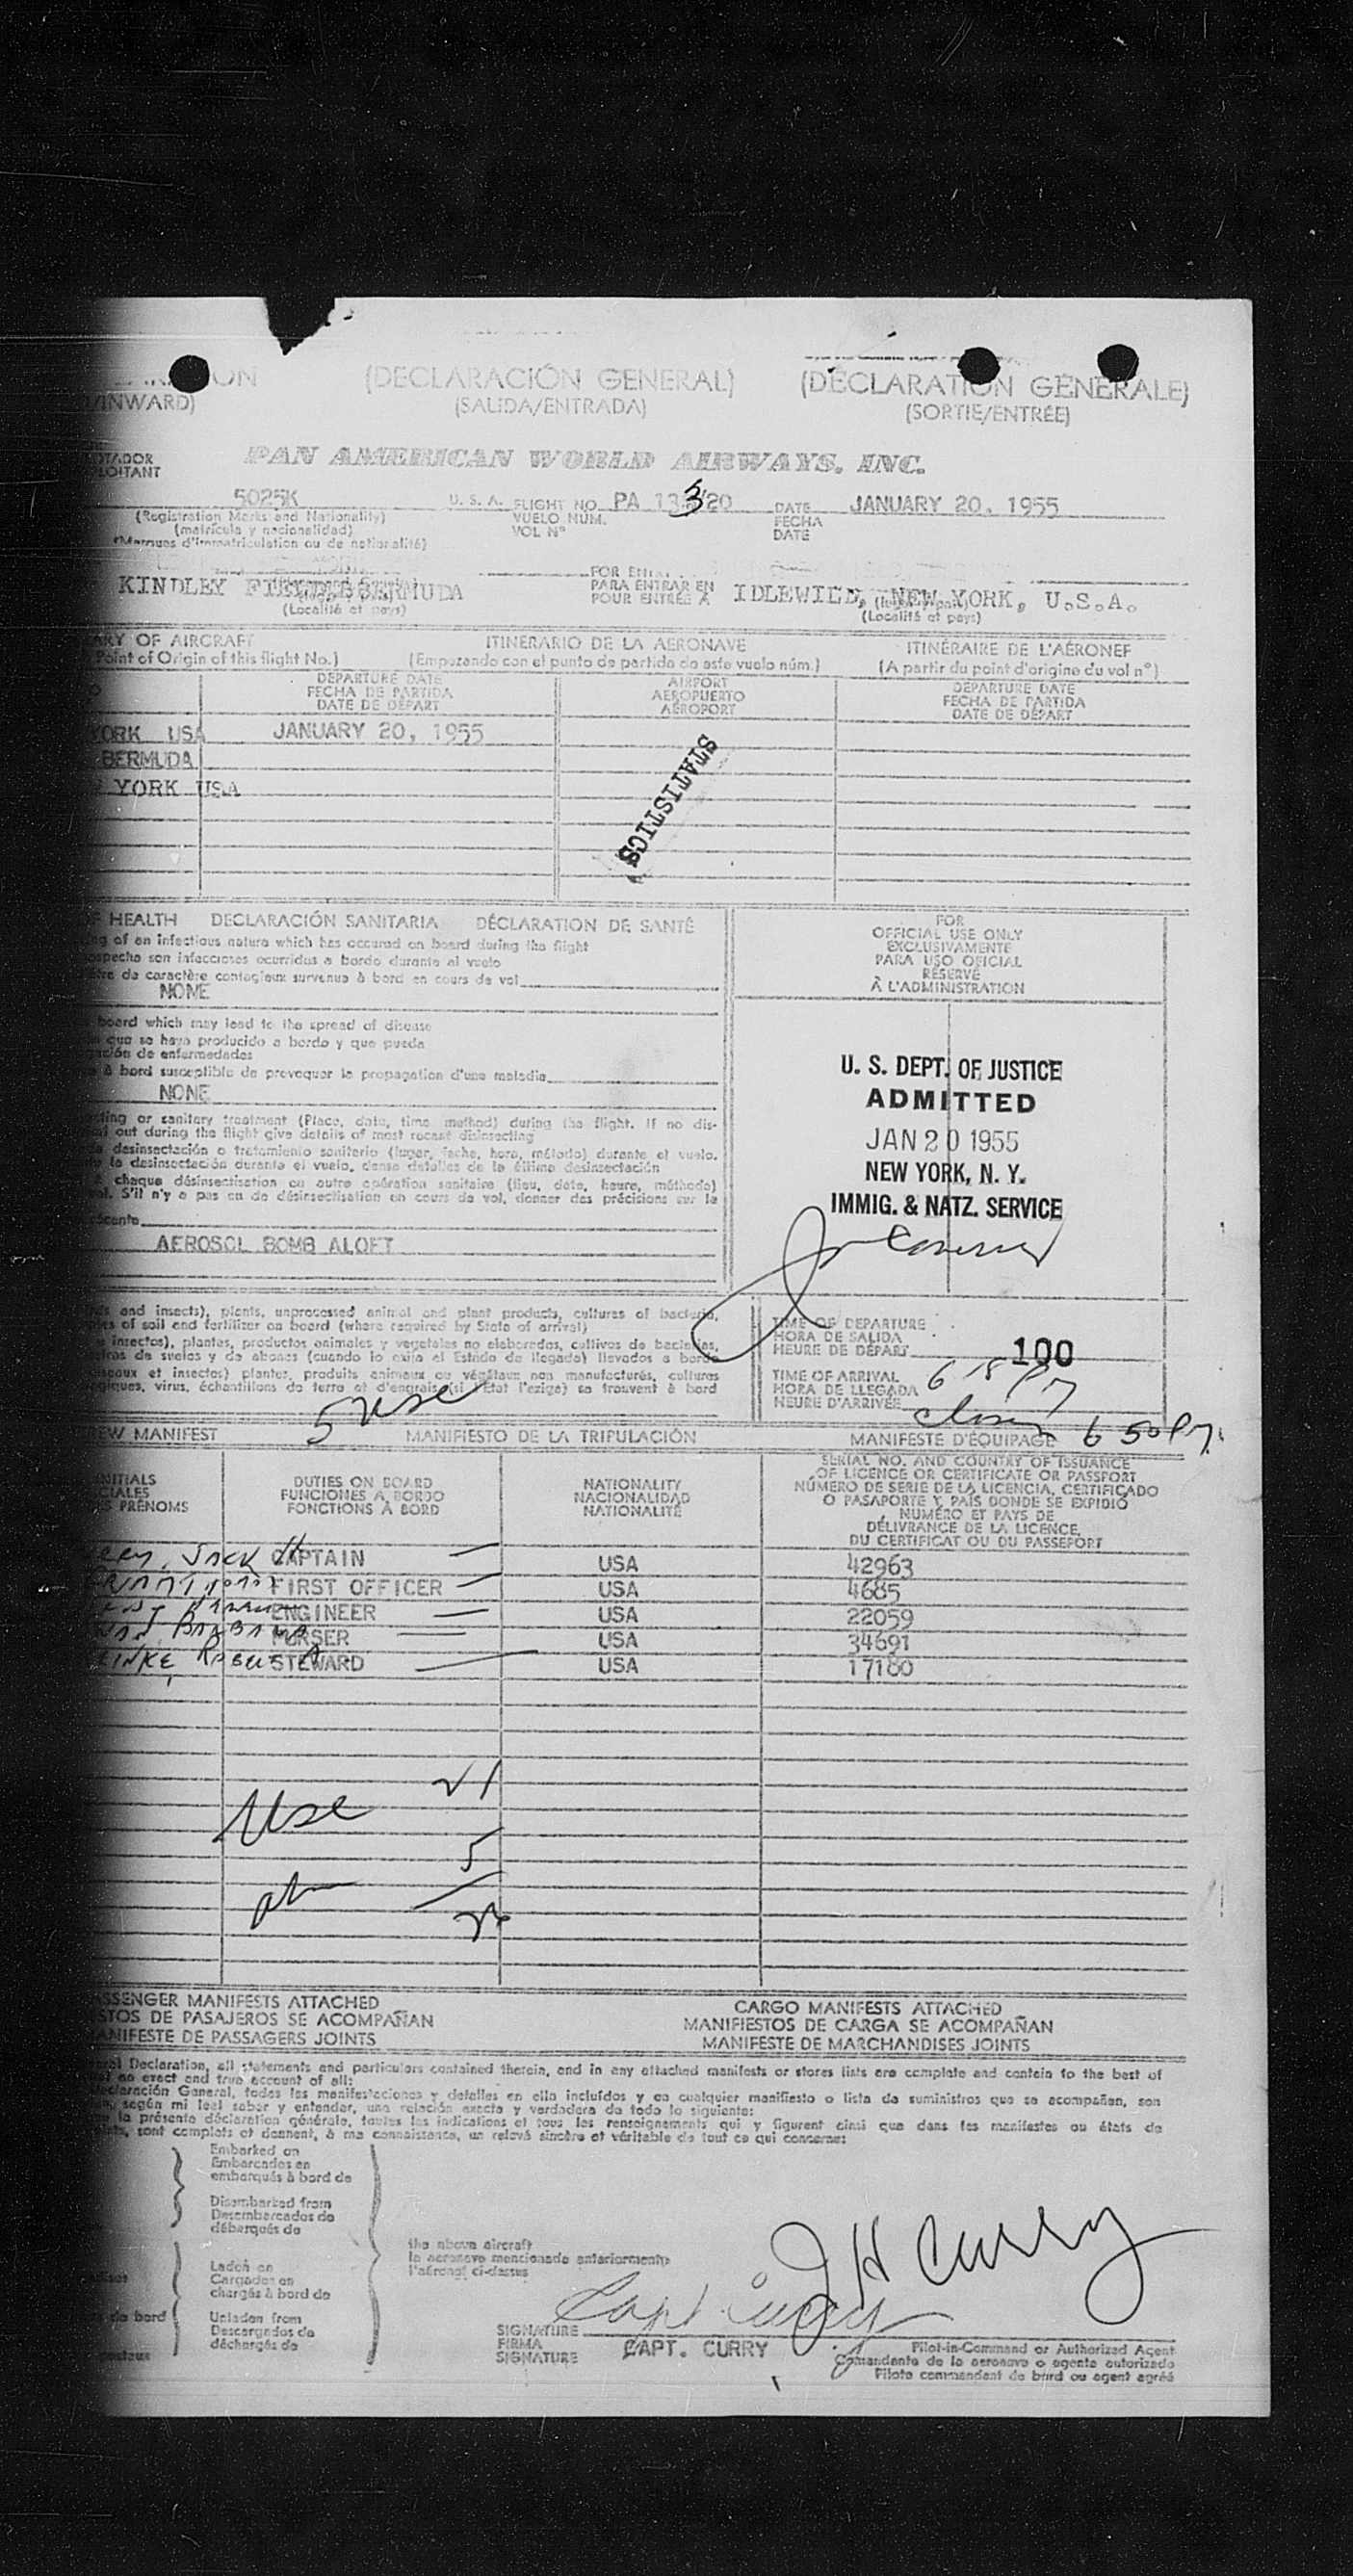 ON (DECLARACIÓN GENERAL) (DÉCLARATION GÉNÉRALE)
/INWARD) (SALIDA/ENTRADA) (SORTIE/ENTRÉE)
PAN AMERICAN WORLD AIRWAYS, INC.
5025K U. S. A. FLIGHT NO. PA 133/20 DATE JANUARY 20, 1955
(Registration Marks and Nationality) VUELO NÚM. FECHA
(matrícula y nacionalidad) VOL Nº DATE
(Marques d'immatriculation ou de nationalité)
FOR ENTRY
KINDLEY FIELD BERMUDA PARA ENTRAR EN IDLEWILD, NEW YORK, U.S.A.
(Localité et pays) POUR ENTRÉE À (Localité et pays)
OF AIRCRAFT ITINERARIO DE LA AERONAVE ITINÉRAIRE DE L'AÉRONEF
Point of Origin of this flight No.) (Empezando con el punto de partida de este vuelo núm.) (A partir du point d'origine du vol nº)
DEPARTURE DATE AIRPORT DEPARTURE DATE
FECHA DE PARTIDA AEROPUERTO FECHA DE PARTIDA
DATE DE DÉPART AÉROPORT DATE DE DÉPART
YORK USA JANUARY 20, 1955
BERMUDA
YORK USA
STATISTICS
HEALTH DECLARACIÓN SANITARIA DÉCLARATION DE SANTÉ
of an infectious nature which has occurred on board during the flight
son infecciosos ocurridos a bordo durante el vuelo
de caractère contagieux survenue à bord en cours de vol
NONE
FOR
OFFICIAL USE ONLY
EXCLUSIVAMENTE
PARA USO OFICIAL
RÉSERVÉ
À L'ADMINISTRATION
board which may lead to the spread of disease
que se haya producido a bordo y que pueda
de enfermedades
à bord susceptible de provoquer la propagation d'une maladie
NONE
or sanitary treatment (Place, date, time, method) during the flight. If no dis-
out during the flight give details of most recent disinsecting
desinsectación o tratamiento sanitario (lugar, fecha, hora, método) durante el vuelo.
la desinsectación durante el vuelo, dense detalles de la última desinsectación
chaque désinsectisation ou autre opération sanitaire (lieu, date, heure, méthode)
S'il n'y a pas eu de désinsectisation en cours de vol, donner des précisions sur la
AEROSOL BOMB ALOFT
U. S. DEPT. OF JUSTICE
ADMITTED
JAN 20 1955
NEW YORK, N. Y.
IMMIG. & NATZ. SERVICE
and insects), plants, unprocessed animal and plant products, cultures of bacteria,
of soil and fertilizer on board (where required by State of arrival)
insectos), plantas, productos animales y vegetales no elaborados, cultivos de bacterias,
de suelos y de abonos (cuando lo exija el Estado de llegada) llevados a bordo
et insectes) plantes, produits animaux ou végétaux non manufacturés, cultures
virus, échantillons de terre et d'engrais (si l'État l'exige) se trouvant à bord
TIME OF DEPARTURE
HORA DE SALIDA
HEURE DE DÉPART 100
TIME OF ARRIVAL
HORA DE LLEGADA 6 15 PM
HEURE D'ARRIVÉE
5 usc
6 50 PM
MANIFEST MANIFIESTO DE LA TRIPULACIÓN MANIFESTE D'ÉQUIPAGE
INITIALS DUTIES ON BOARD NATIONALITY SERIAL NO. AND COUNTRY OF ISSUANCE
FUNCIONES A BORDO NACIONALIDAD OF LICENCE OR CERTIFICATE OR PASSPORT
PRÉNOMS FONCTIONS À BORD NATIONALITÉ NÚMERO DE SERIE DE LA LICENCIA, CERTIFICADO
O PASAPORTE Y PAÍS DONDE SE EXPIDIÓ
NUMÉRO ET PAYS DE
DÉLIVRANCE DE LA LICENCE,
DU CERTIFICAT OU DU PASSEPORT
JACK H CAPTAIN USA 42963
FIRST OFFICER USA 4685
ENGINEER USA 22059
BARBARA PURSER USA 34691
STEWARD USA 17180
usc 21
5
PASSENGER MANIFESTS ATTACHED CARGO MANIFESTS ATTACHED
DE PASAJEROS SE ACOMPAÑAN MANIFIESTOS DE CARGA SE ACOMPAÑAN
MANIFESTE DE PASSAGERS JOINTS MANIFESTE DE MARCHANDISES JOINTS
Declaration, all statements and particulars contained therein, and in any attached manifests or stores lists are complete and contain to the best of
an exact and true account of all:
Declaración General, todas las manifestaciones y detalles en ella incluídos y en cualquier manifiesto o lista de suministros que se acompañan, son
según mi leal saber y entender, una relación exacta y verdadera de todo lo siguiente:
la présente déclaration générale, toutes les indications et tous les renseignements qui y figurent ainsi que dans les manifestes ou états de
sont complets et donnent, à ma connaissance, un relevé sincère et véritable de tout ce qui concerne:
Embarked on
Embarcados en
embarqués à bord de
Disembarked from
Desembarcados de
débarqués de
the above aircraft
la aeronave mencionada anteriormente
l'aéronef ci-dessus
Laden on
Cargados en
chargés à bord de
de bord Unladen from
Descargados de
déchargés de
J H Curry
Capt. Curry
SIGNATURE
FIRMA CAPT. CURRY
SIGNATURE
Pilot-in-Command or Authorized Agent
Comandante de la aeronave o agente autorizado
Pilote commandant de bord ou agent agréé